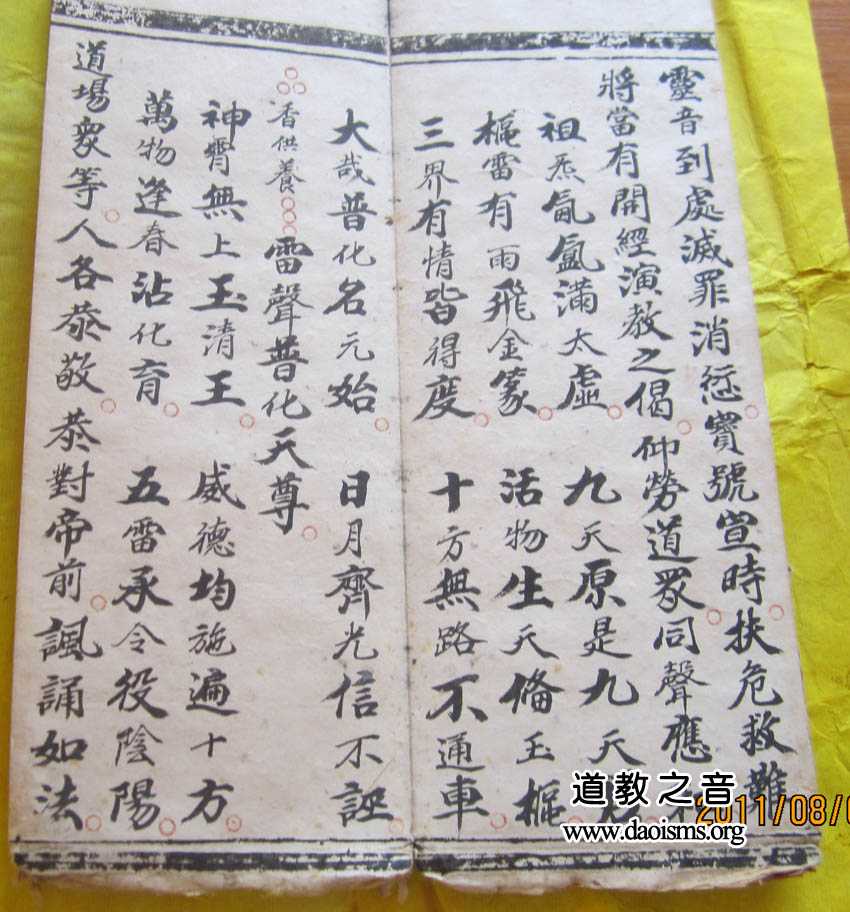 靈音到處滅罪消愆寳號宣時扶危救難
將當有開經演教之偈仰勞道眾同聲應
祖炁氤氲滿太虛 九天原是九天
樞雷有雨飛金篆 活物生天俻玉樞
三界有情皆得度 十方無路不通車
大哉普化名元始 日月齊光信不誣
香供養 雷聲普化天尊
神霄無上玉清王 威德均施遍十方
萬物逢春沾化育 五雷承令役陰陽
道場眾等人各恭敬恭對帝前諷誦如法
道教之音
www.daoisms.org
2011/08/0